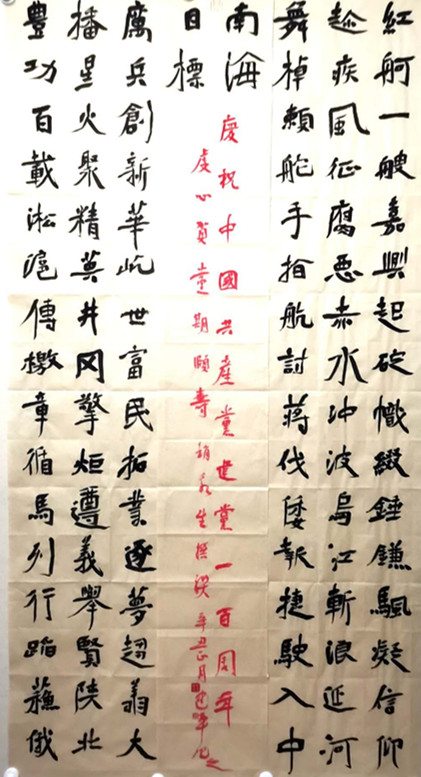 紅舸一艘嘉興起碇幟綴錘鐮颿凝信仰
趁疾風征腐惡赤水沖波烏江斬浪延河
舞棹賴舵手指航討蔣伐倭報捷駛入中
南海
豐功百載淞滬傳檄章循馬列行蹈蘇俄
播星火聚精英井岡擎炬遵義舉賢陝北
厲兵創新華此世富民拓業逐夢超翁大
目標
慶祝中國共產黨建黨一百周年
虔心賀黨期頤壽 生撰 辛丑正月